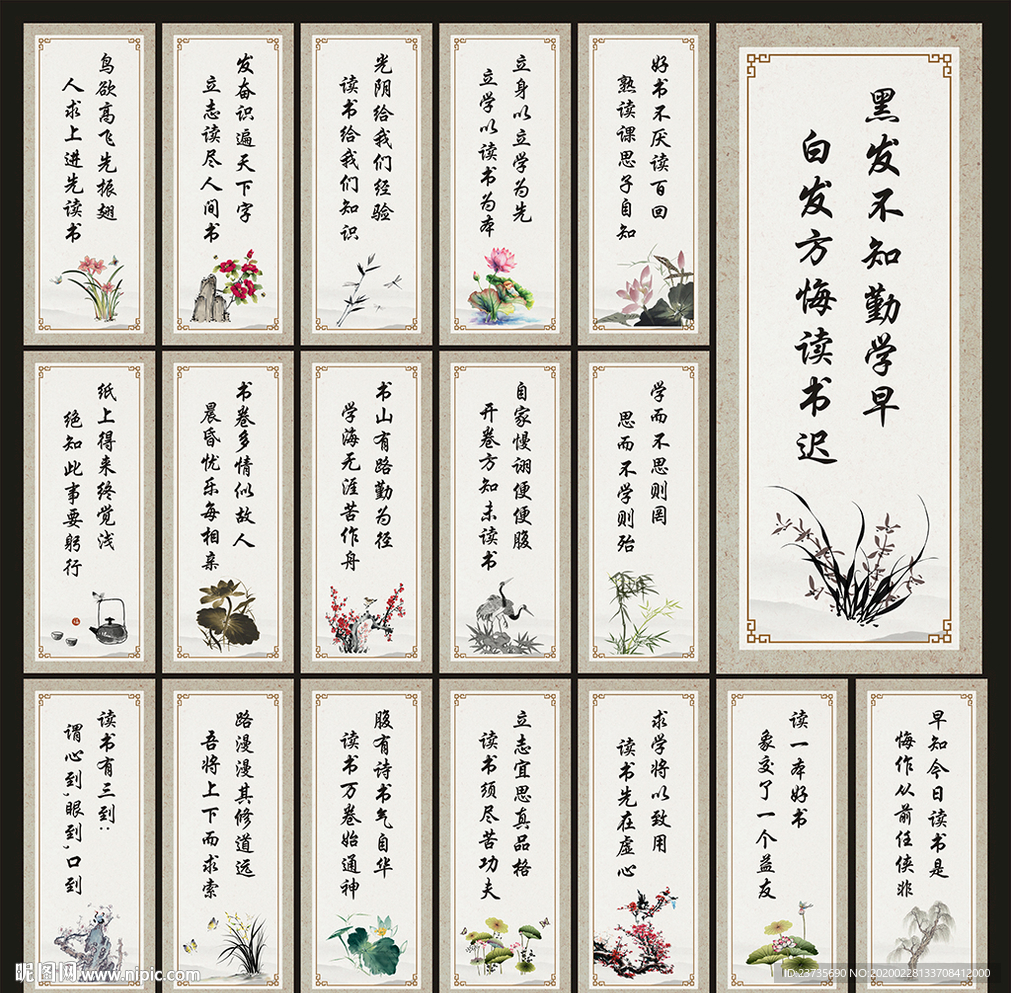 鸟欲高飞先振翅
人求上进先读书
发奋识遍天下字
立志读尽人间书
光阴给我们经验
读书给我们知识
立身以立学为先
立学以读书为本
好书不厌读百回
熟读课思子自知
黑发不知勤学早
白发方悔读书迟
纸上得来终觉浅
绝知此事要躬行
书卷多情似故人
晨昏忧乐每相亲
书山有路勤为径
学海无涯苦作舟
自家慢诩便便腹
开卷方知未读书
学而不思则罔
思而不学则殆
读书有三到:
谓心到,眼到,口到
路漫漫其修道远
吾将上下而求索
腹有诗书气自华
读书万卷始通神
立志宜思真品格
读书须尽苦功夫
求学将以致用
读书先在虚心
读一本好书
象交了一个益友
早知今日读书是
悔作从前任侠非
昵图网 www.nipic.com
ID:23735690 NO:20200228133708412000